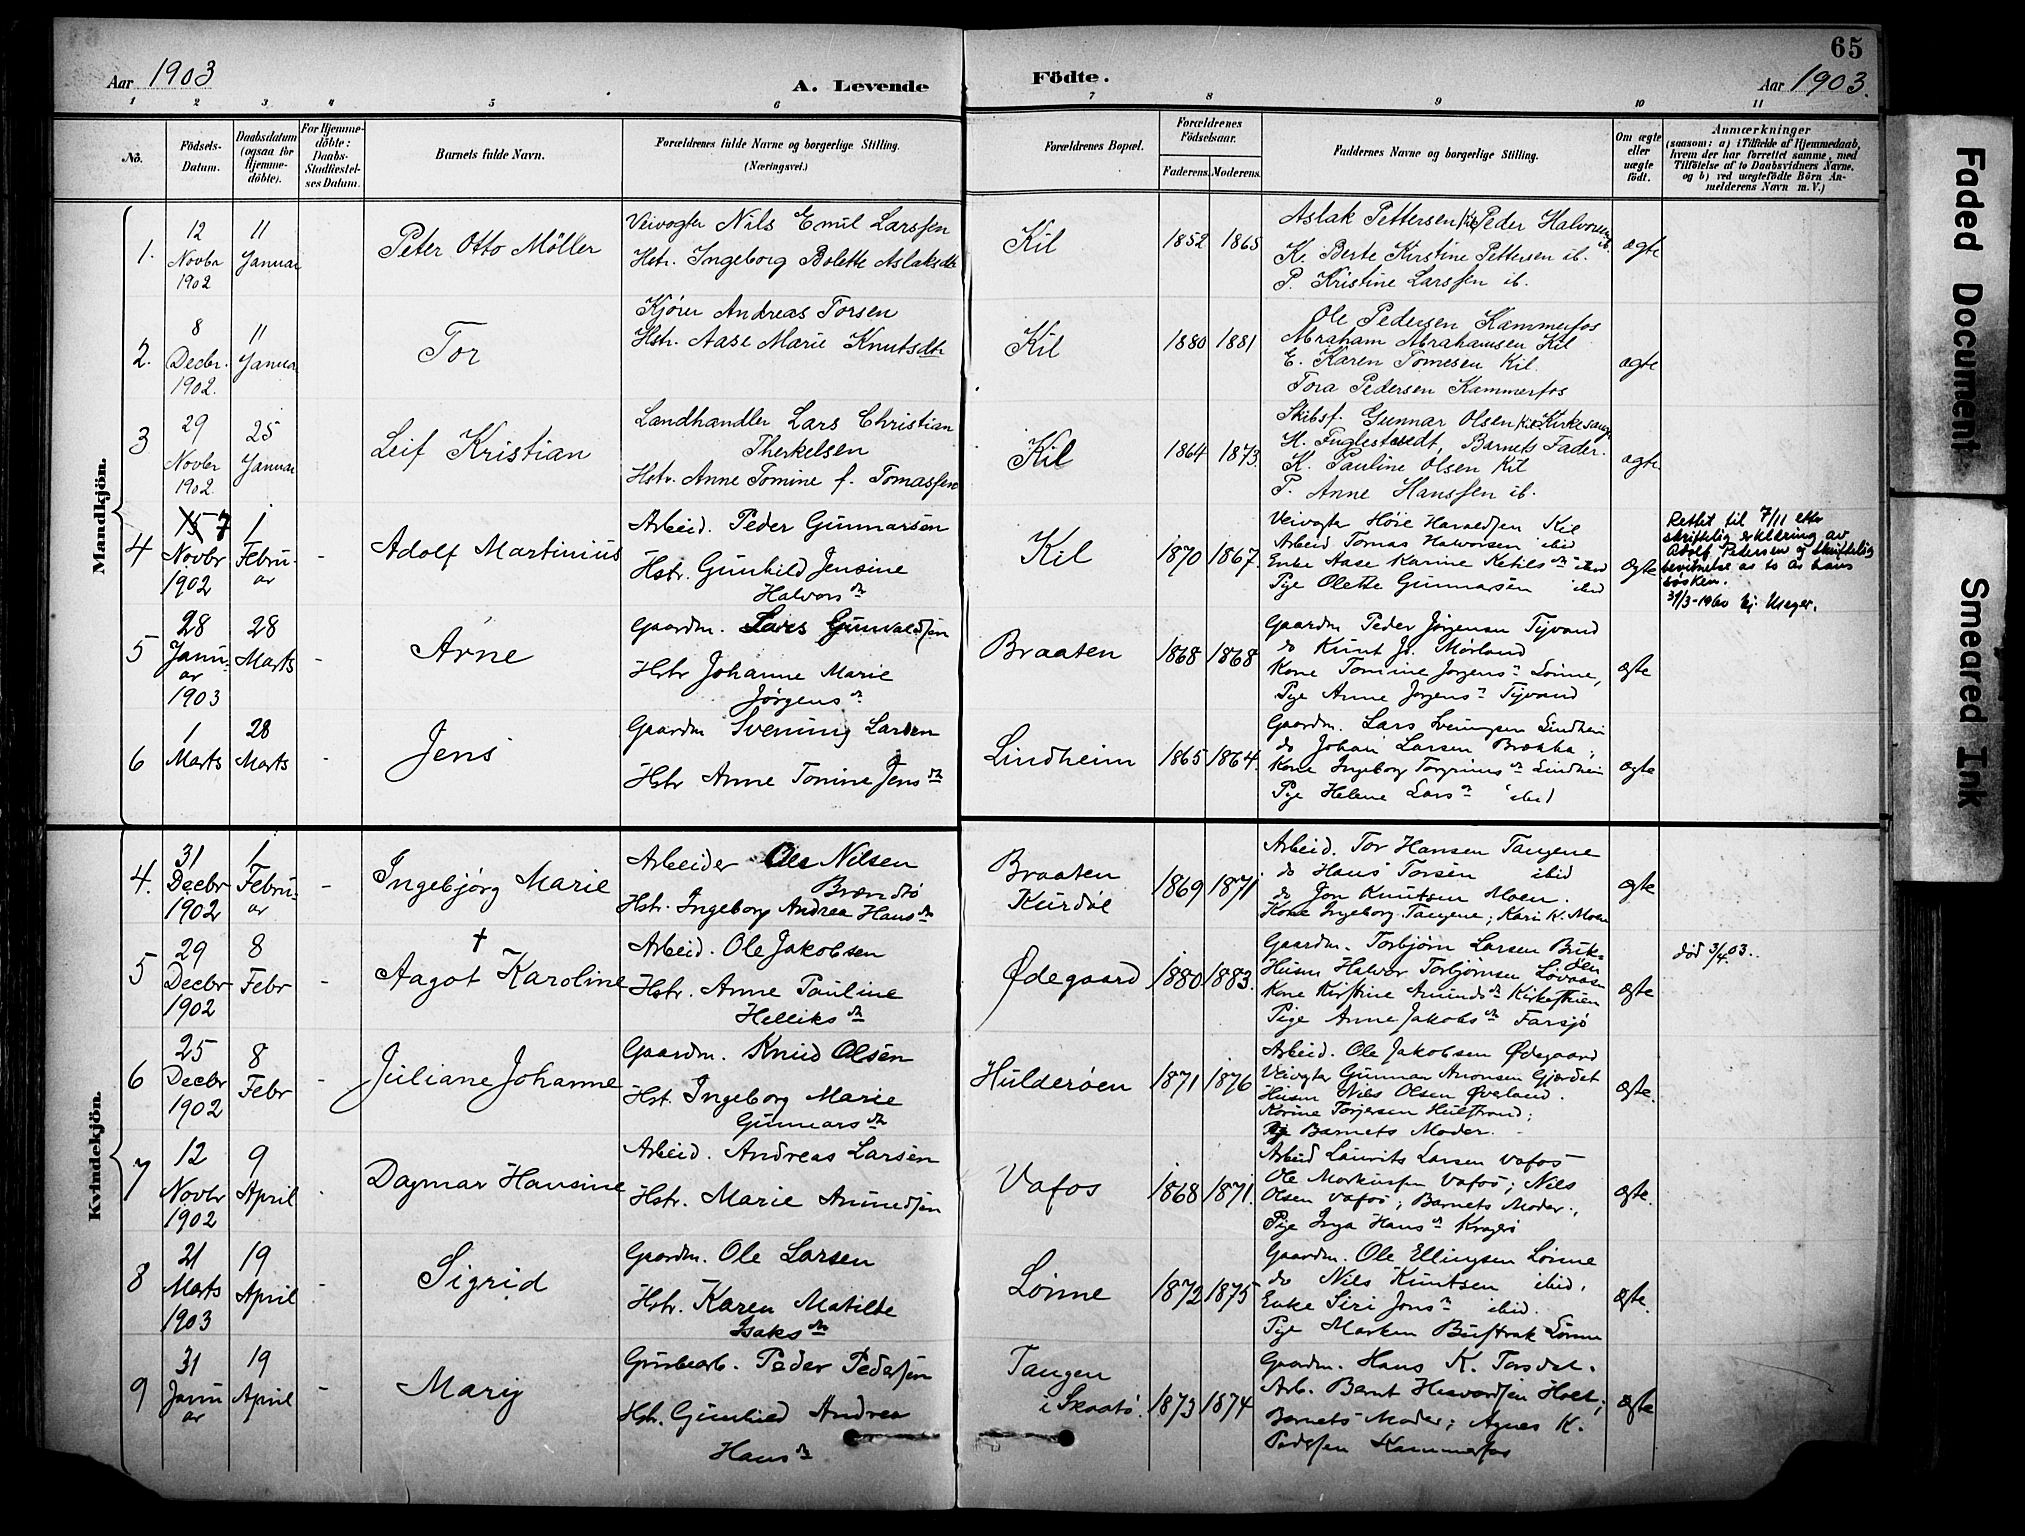 65
Aar 1903
A. Levende
Födte.
Aar 1903.
1 2 3 4 5 6 7 8 9 10 11
No.
Födsels-Datum.
Daabsdatum (ogsaa for Hjemme-döbte).
For Hjemme-döbte: Daabs-Stadfæstel-ses Datum.
Barnets fulde Navn.
Forældrenes fulde Navne og borgerlige Stilling.
(Næringsvei.)
Forældrenes Bopæl.
Forældrenes Födselsaar.
Faderens. Moderens.
Faddernes Navne og borgerlige Stilling.
Om ægte eller uægte födt.
Anmærkninger
(saasom: a) i Tilfælde af Hjemmedaab,
hvem der har forrettet samme, med
Tilföielse af to Daabsvidners Navne,
og b) ved uægtefödte Börn An-
melderens Navn m. V.)
Mandkjön.
1.
12 Novbr 1902
11 Januar
Peter Otto Möller
Veivogter Nils Emil Larssen
Hstr. Ingeborg Bolette Aslaksdtr
Kil
1852 1865
Aslak Pettersen Kil Peder Halvorsen ib.
K. Berte Kirstine Pettersen ib.
P. Kristine Larssen ib.
ægte
2.
8 Decbr. 1902.
11 Januar
Tor
Kjörer Andreas Torsen
Hstr. Aase Marie Knutsdtr
Kil
1880 1881
Ole Pedersen Kammerfos
Abraham Abrahamsen Kil
E. Karen Tomesen Kil.
Tora Pedersen Kammerfos
ægte
3
29 Novbr 1902.
25 Januar
Leif Kristian
Landhandler Lars Christian
Therkelsen
Hstr. Anne Tomine f. Tomassen
Kil
1864 1873.
Skibsf. Gunnar Olsen Kil Kirkesang.
H. Fuglestvedt, Barnets Fader.
K. Pauline Olsen Kil
P. Anne Hanssen ib.
ægte
4
15 7 Novbr 1902
1 Febru-ar
-
Adolf Martinius
Arbeid. Peder Gunnarsen
Hstr. Gunhild Jensine
Halvorsdtr
Kil
1870 1867.
Veivogter Höie Haraldsen Kil
Arbeid Tomas Halvorsen ibid
Enke Aase Karine Ketilsdtr ibid
Pige Olette Gunnarsen ibid
ægte
Rettet til 7/11 etter
skriftlig erklæring av
Adolf Petersen og skriftelig
bevitnelse av to av hans
søsken.
31/3-1960
5
28 Janu-ar 1903
28 Marts
-
Arne
Gaardm. Lars Gunvaldsen
Hstr Johanne Marie
Jørgensdtr
Braaten
1868 1868
Gaardm Peder Jørgensen Tyvand
do Knut Js. Mørland
Kone Tomine Jørgensdtr Lönne,
Pige Anne Jørgensdtr Tyvand
ægte
6
1 Marts
28 Marts
-
Jens
Gaardm Svenung Larsen
Hstr Anne Tomine Jensdtr
Lindheim
1865 1864.
Gaardm. Lars Svenungsen Lindheim
do Johan Larsen Brokka;
Kone Ingeborg Torgrimsdtr Lindheim
Pige Helene Larsdtr ibid
ægte
Kvindekjön.
4.
31 Decbr 1902
1 Febru-ar
-
Ingebjørg Marie
Arbeider Ole Nilsen
Brændsö
Hstr. Ingeborg Andrea Hansdtr
Braaten
Kurdöl
1869 1871.
Arbeid. Tor Hansen Tangene
do Hans Torsen ibid
do Jon Knutsen Moen.
Kone Ingeborg Tangene; Kari K. Moen
ægte
5
29 Decbr 1902
8 Febr
-
†
Aagot Karoline
Arbeid. Ole Jakobsen
Hstr. Anne Pauline
Helliksdtr
Ødegaard
1880 1883.
Gaardm. Torbjörn Larsen
Husm Halvor Torbjörnsen Lövaasen
Kone Kirstine Amundsdtr
Pige Anne Jakobsdtr Farsjö
ægte
död 3/4 03.
6
25 Decbr 1902
8 Febr
-
Juliane Johanne
Gaardm. Knud Olsen
Hst. Ingeborg Marie
Gunnarsdtr
Hulderöen
1871 1876
Arbeid. Ole Jakobsen Ødegaard
Veivogter Gunnar Aronsen Gjerdet
Husm Nils Olsen Øveland.
Karine Torjersen
Barnets Moder.
ægte.
7
12 Novbr 1902
9 April
-
Dagmar Hansine
Arbeid. Andreas Larsen
Hstr. Marie Amundsen
Vafos
1868 1871.
Arbeid Laurits Larsen Vafos
Ole Markussen Vafos; Nils
Olsen Vafos; Barnets Moder;
Pige Inga Hansdtr Kragerö
ægte.
8
21 Marts 1903
19 April
-
Sigrid
Gaardm. Ole Larsen
Hstr. Karen Matilde
Isaksdtr
Lönne
1872 1875
Gaardm. Ole Ellingsen Lönne
do Nils Knutsen ibid,
Enke Siri Jonsdtr ibid.
Pige Marken Lönne
ægte.
9
31 Janu-ar
19 April
-
Marie
Grubearb. Peder Pedersen
Hstr. Gunhild Andrea
Hansdtr
Tangen
i Skaatö.
1873 1874
Gaardm. Hans K. Torsdal.
Arb. Bernt Havardsen Holt;
Barnets Moder; Agnes K.
Pedersen Kammerfos
ægte
Faded Document
Smeared Ink